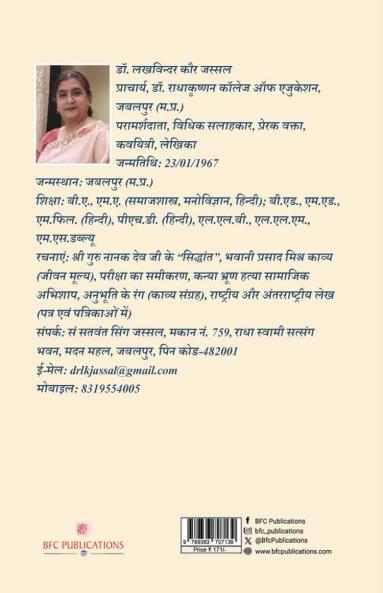 डॉ. लखविन्दर कौर जस्सल
प्राचार्य, डॉ. राधाकृष्णन कॉलेज ऑफ एजुकेशन,
जबलपुर (म.प्र.)
परामर्शदाता, विधिक सलाहकार, प्रेरक वक्ता,
कवयित्री, लेखिका
जन्मतिथि: 23/01/1967
जन्मस्थान: जबलपुर (म.प्र.)
शिक्षा: बी.ए., एम.ए. (समाजशास्त्र, मनोविज्ञान, हिन्दी); बी.एड., एम.एड.,
एम.फिल. (हिन्दी), पीएच.डी. (हिन्दी), एल.एल.बी., एल.एल.एम.,
एम.एस.डब्ल्यू
रचनाएं: श्री गुरु नानक देव जी के “सिद्धांत”, भवानी प्रसाद मिश्र काव्य
(जीवन मूल्य), परीक्षा का समीकरण, कन्या भ्रूण हत्या सामाजिक
अभिशाप, अनुभूति के रंग (काव्य संग्रह), राष्ट्रीय और अंतरराष्ट्रीय लेख
(पत्र एवं पत्रिकाओं में)
संपर्क: सं सतवंत सिंग जस्सल, मकान नं. 759, राधा स्वामी सत्संग
भवन, मदन महल, जबलपुर, पिन कोड-482001
ई-मेल: drlkjassal@gmail.com
मोबाइल: 8319554005
BFC PUBLICATIONS
9 789363 707139
Price ₹ 171/-
BFC Publications
bfc_publications
@BFCPublications
www.bfcpublications.com